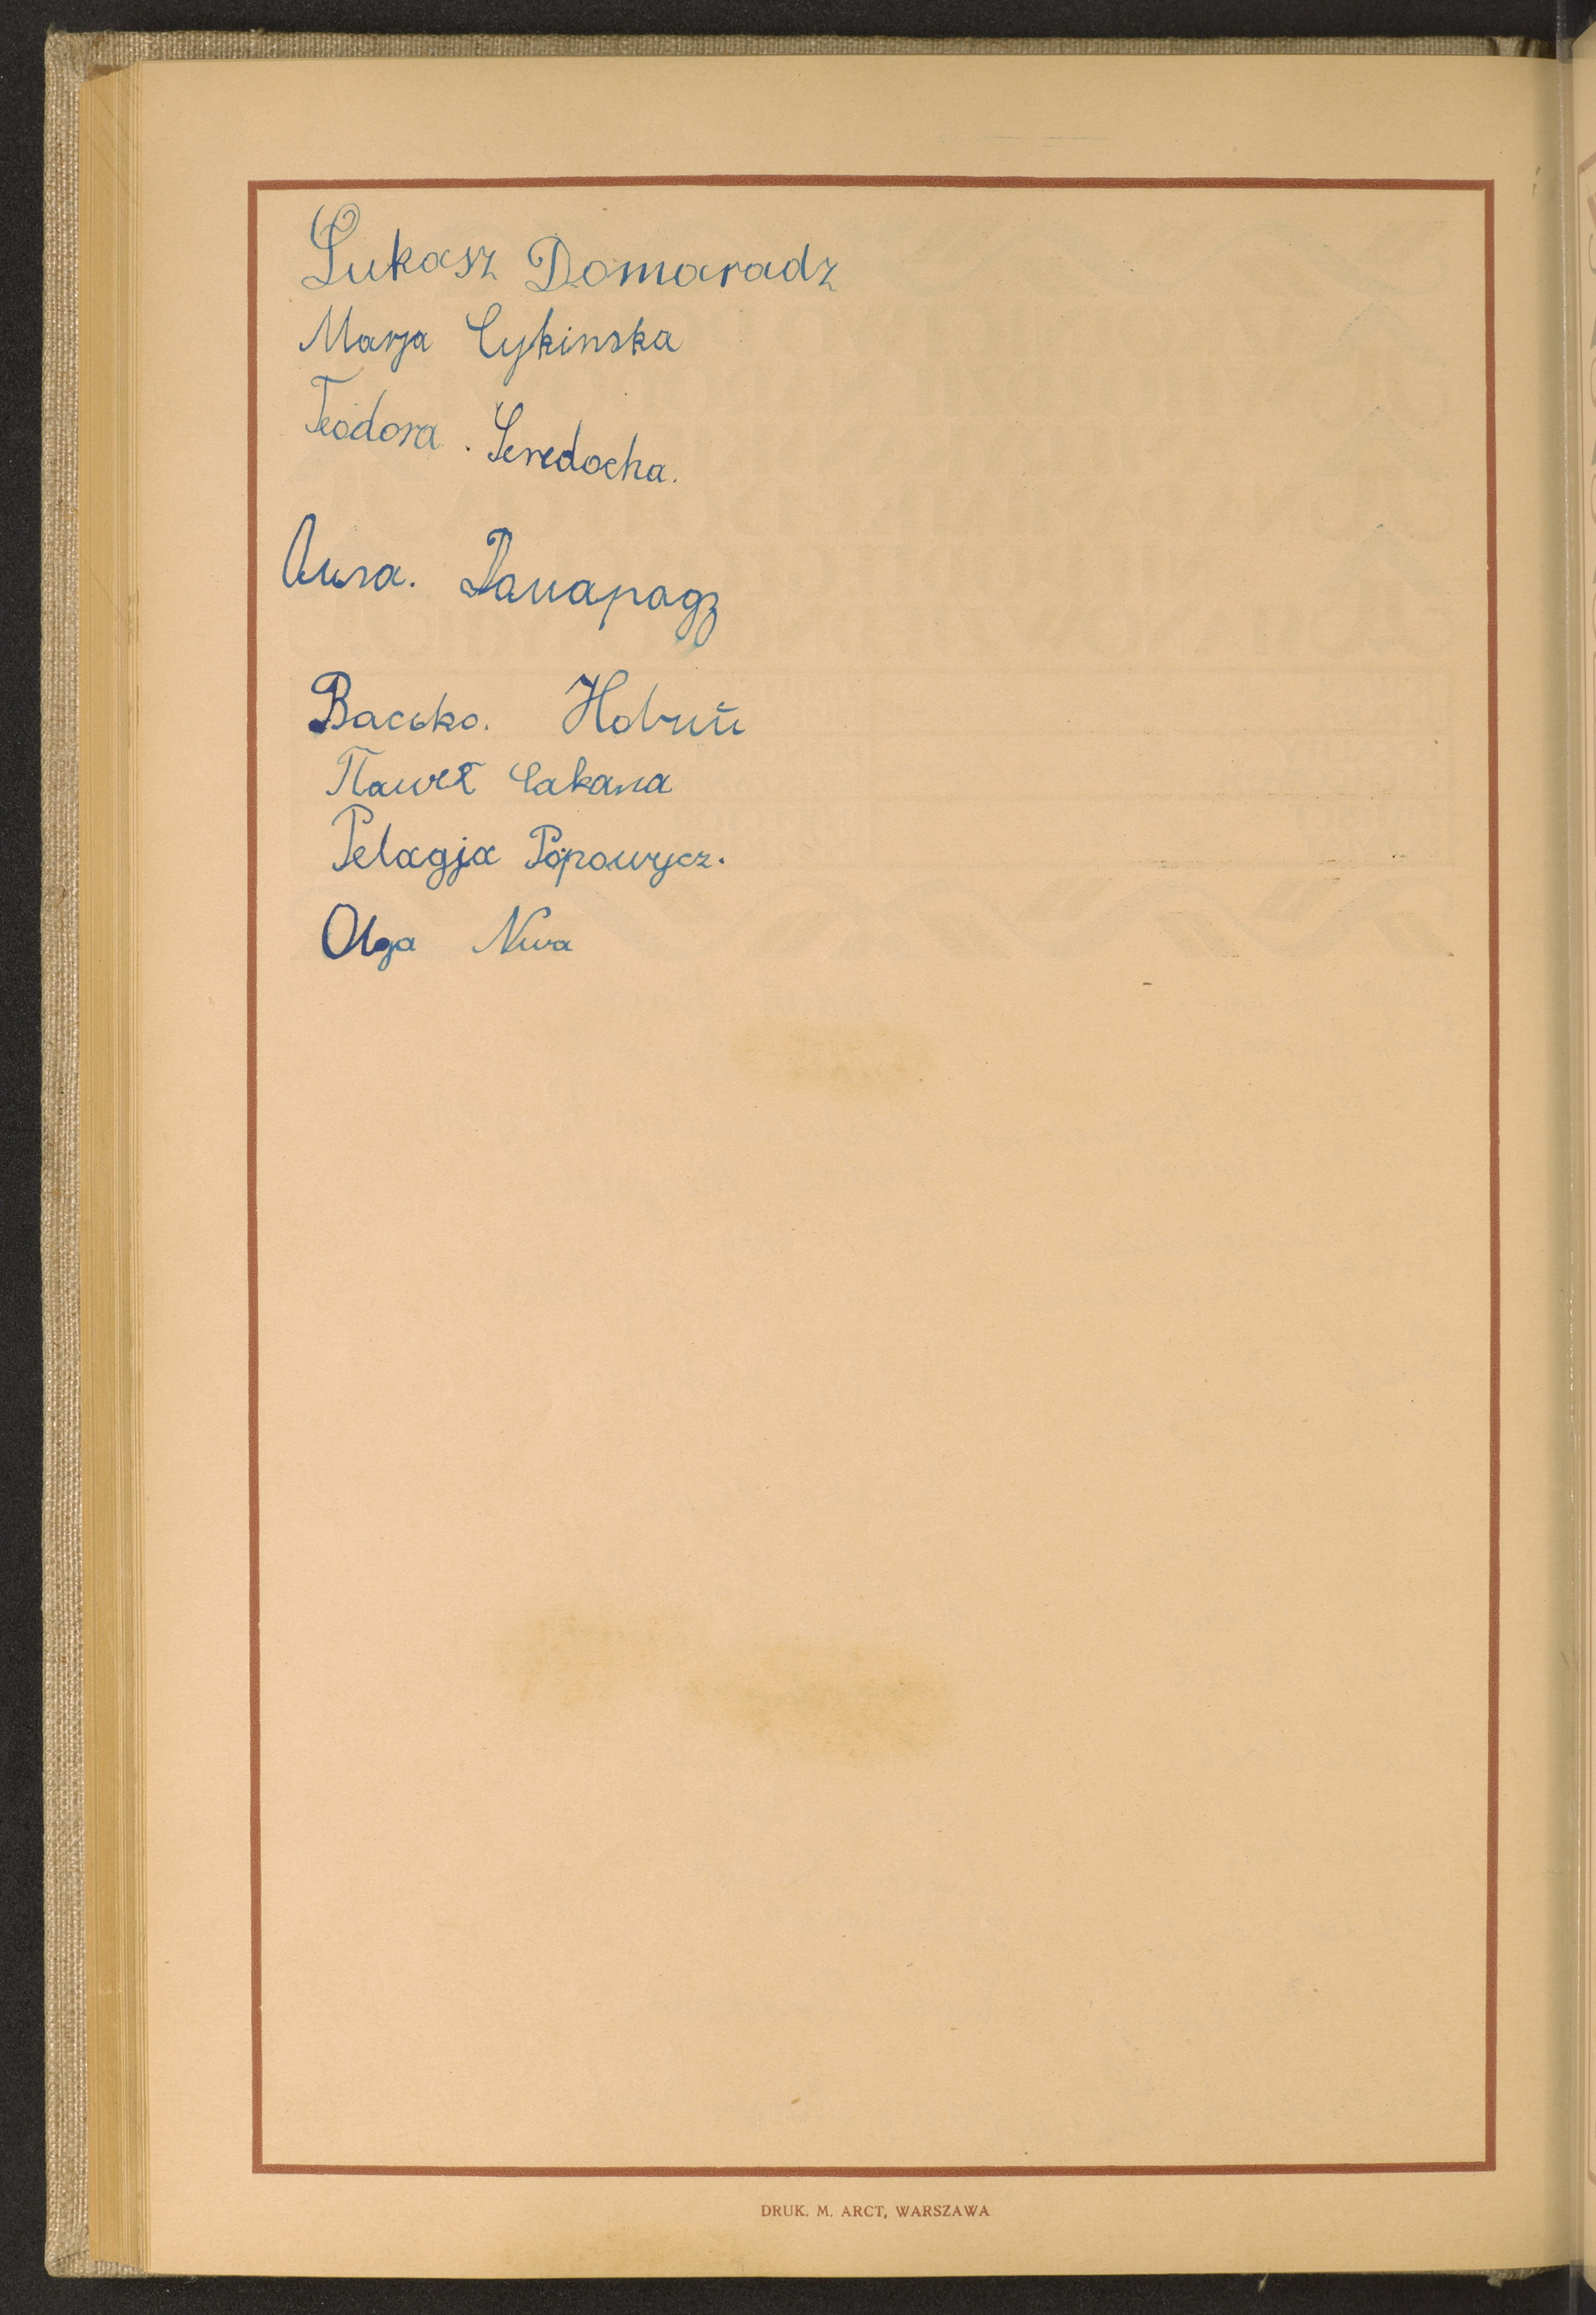 Łukasz Domaradz
Marja Cykinska
Teodora. Seredocha.
Домарадз
Васько. Новий
Pelagja Popowycz.
Olga Niva
DRUK. M. ARCT, WARSZAWA